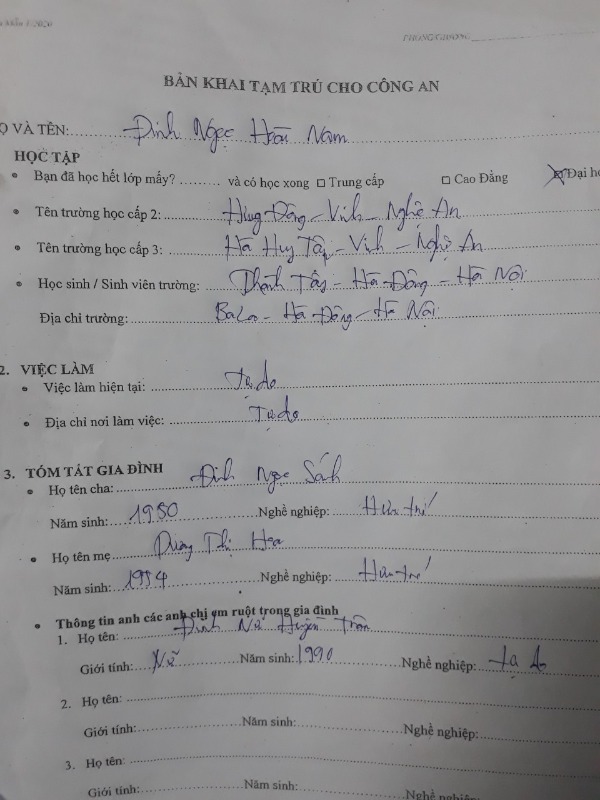 BẢN KHAI TẠM TRÚ CHO CÔNG AN
Ọ VÀ TÊN: Đinh Ngọc Hoài Nam
HỌC TẬP
• Bạn đã học hết lớp mấy? ......... và có học xong □ Trung cấp □ Cao Đẳng ☒ Đại họ
• Tên trường học cấp 2: Hưng Đông - Vinh - Nghệ An
• Tên trường học cấp 3: Hà Huy Tập - Vinh - Nghệ An
• Học sinh / Sinh viên trường: Thành Tây - Hà Đông - Hà Nội
Địa chỉ trường: Ba La - Hà Đông - Hà Nội
2. VIỆC LÀM
• Việc làm hiện tại: Tự do
• Địa chỉ nơi làm việc: Tự do
3. TÓM TẮT GIA ĐÌNH
• Họ tên cha: Đinh Ngọc Sánh
Năm sinh: 1950 Nghề nghiệp: Hưu trí
• Họ tên mẹ Dương Thị Hoa
Năm sinh: 1954 Nghề nghiệp: Hưu trí
• Thông tin anh các anh chị em ruột trong gia đình
1. Họ tên: Đinh Nữ Huyền Trân
Giới tính: Nữ Năm sinh: 1990 Nghề nghiệp:
2. Họ tên:
Giới tính: Năm sinh: Nghề nghiệp:
3. Họ tên:
Giới tính: Năm sinh: Nghề nghiệp: